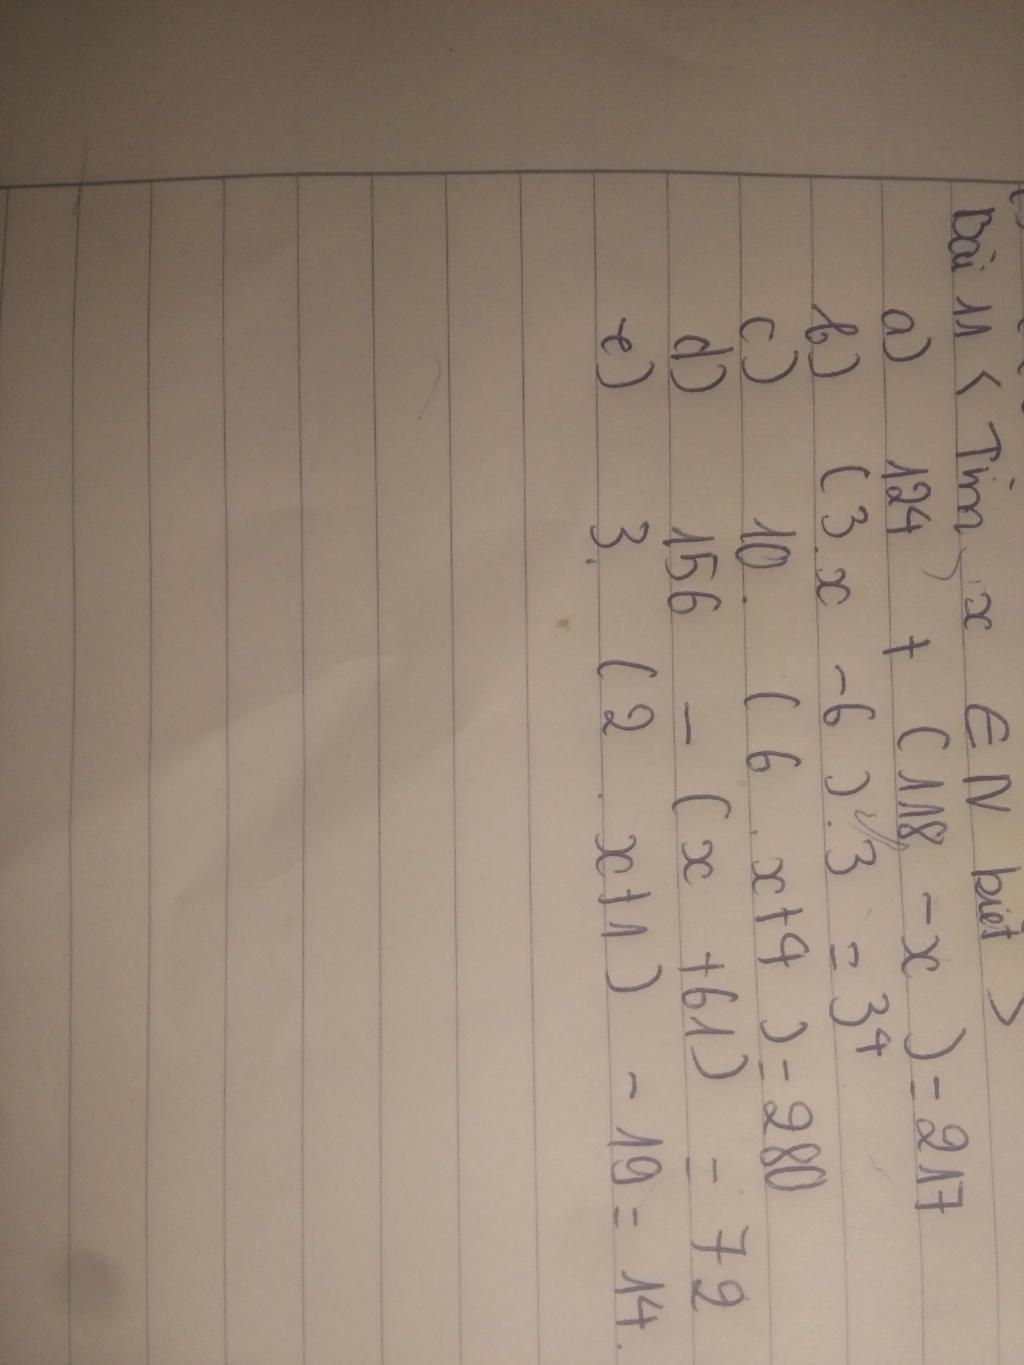 Bài 11 < Tìm x ∈ N biết >
a) 124 + (118 - x) = 217
b) (3.x - 6).3 = 3⁴
c) 10. (6.x+4) = 280
d) 156 - (x + 61) = 72
e) 3. (2.x+1) - 19 = 14.